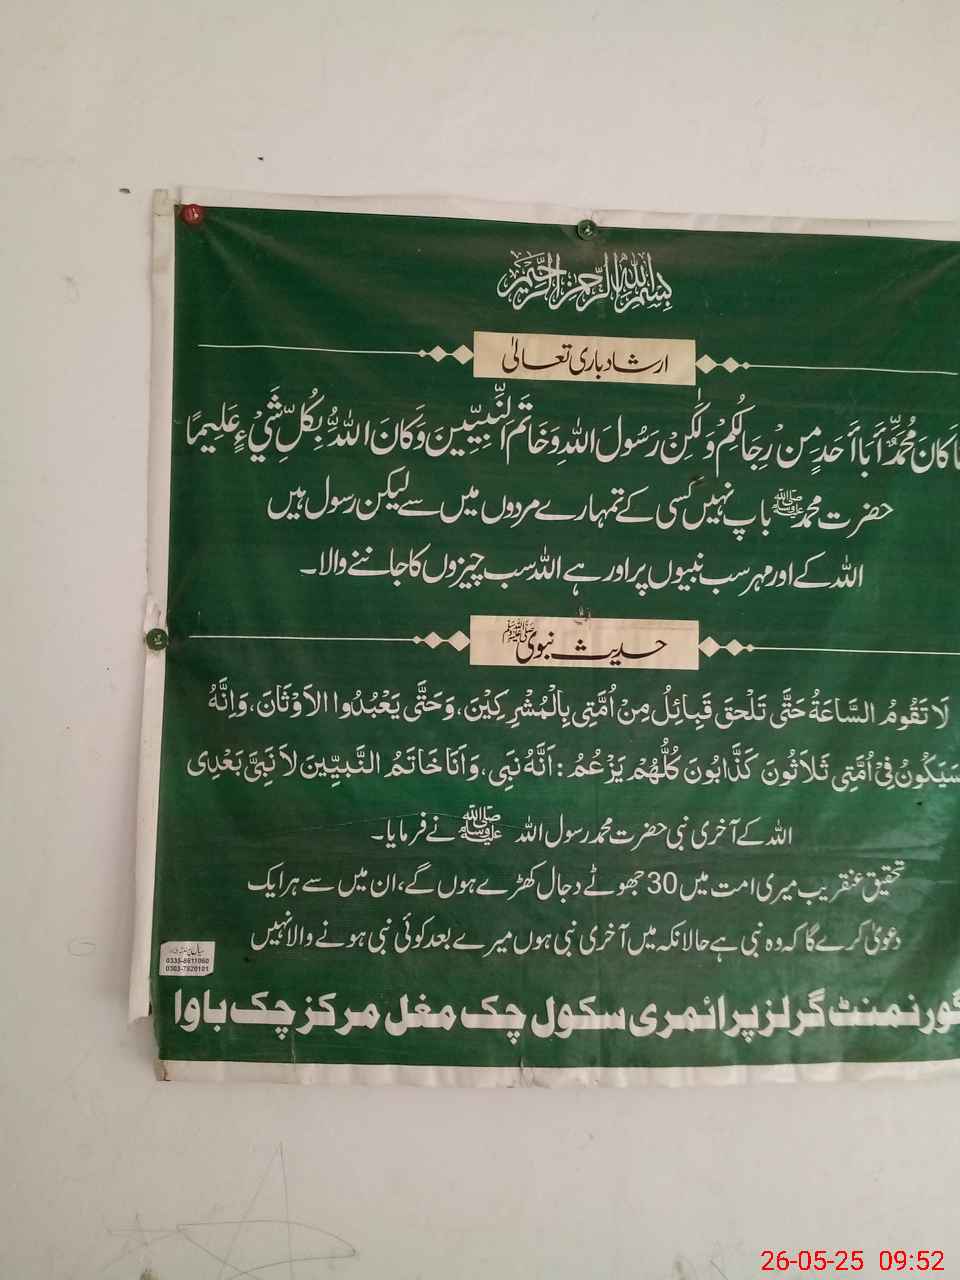 بِسْمِ اللهِ الرَّحْمٰنِ الرَّحِيْمِ
ارشاد باری تعالیٰ
مَا كَانَ مُحَمَّدٌ أَبَا أَحَدٍ مِنْ رِجَالِكُمْ وَلَكِنْ رَسُولَ اللهِ وَخَاتَمَ النَّبِيِّينَ وَكَانَ اللهُ بِكُلِّ شَيْءٍ عَلِيمًا
حضرت محمد ﷺ باپ نہیں کسی کے تمہارے مردوں میں سے لیکن رسول ہیں
اللہ کے اور مہر سب نبیوں پر اور ہے اللہ سب چیزوں کا جاننے والا۔
حدیث نبوی ﷺ
لَا تَقُومُ السَّاعَةُ حَتَّى تَلْحَقَ قَبَائِلُ مِنْ أُمَّتِي بِالْمُشْرِكِيْنَ، وَحَتَّى يَعْبُدُوا الاَوْثَانَ، وَاِنَّهُ
سَيَكُونُ فِيْ اُمَّتِي ثَلَاثُونَ كَذَّابُونَ كُلُّهُمْ يَزْعُمُ: اَنَّهُ نَبِي، وَاَنَا خَاتَمُ النَّبِيِّينَ لاَ نَبِيَّ بَعْدِى
اللہ کے آخری نبی حضرت محمد رسول اللہ ﷺ نے فرمایا۔
تحقیق عنقریب میری امت میں 30 جھوٹے دجال کھڑے ہوں گے، ان میں سے ہر ایک
دعویٰ کرے گا کہ وہ نبی ہے حالانکہ میں آخری نبی ہوں میرے بعد کوئی نبی ہونے والا نہیں
0335-8611060
0303-7820101
گورنمنٹ گرلز پرائمری سکول چک مغل مرکز چک باوا
26-05-25 09:52